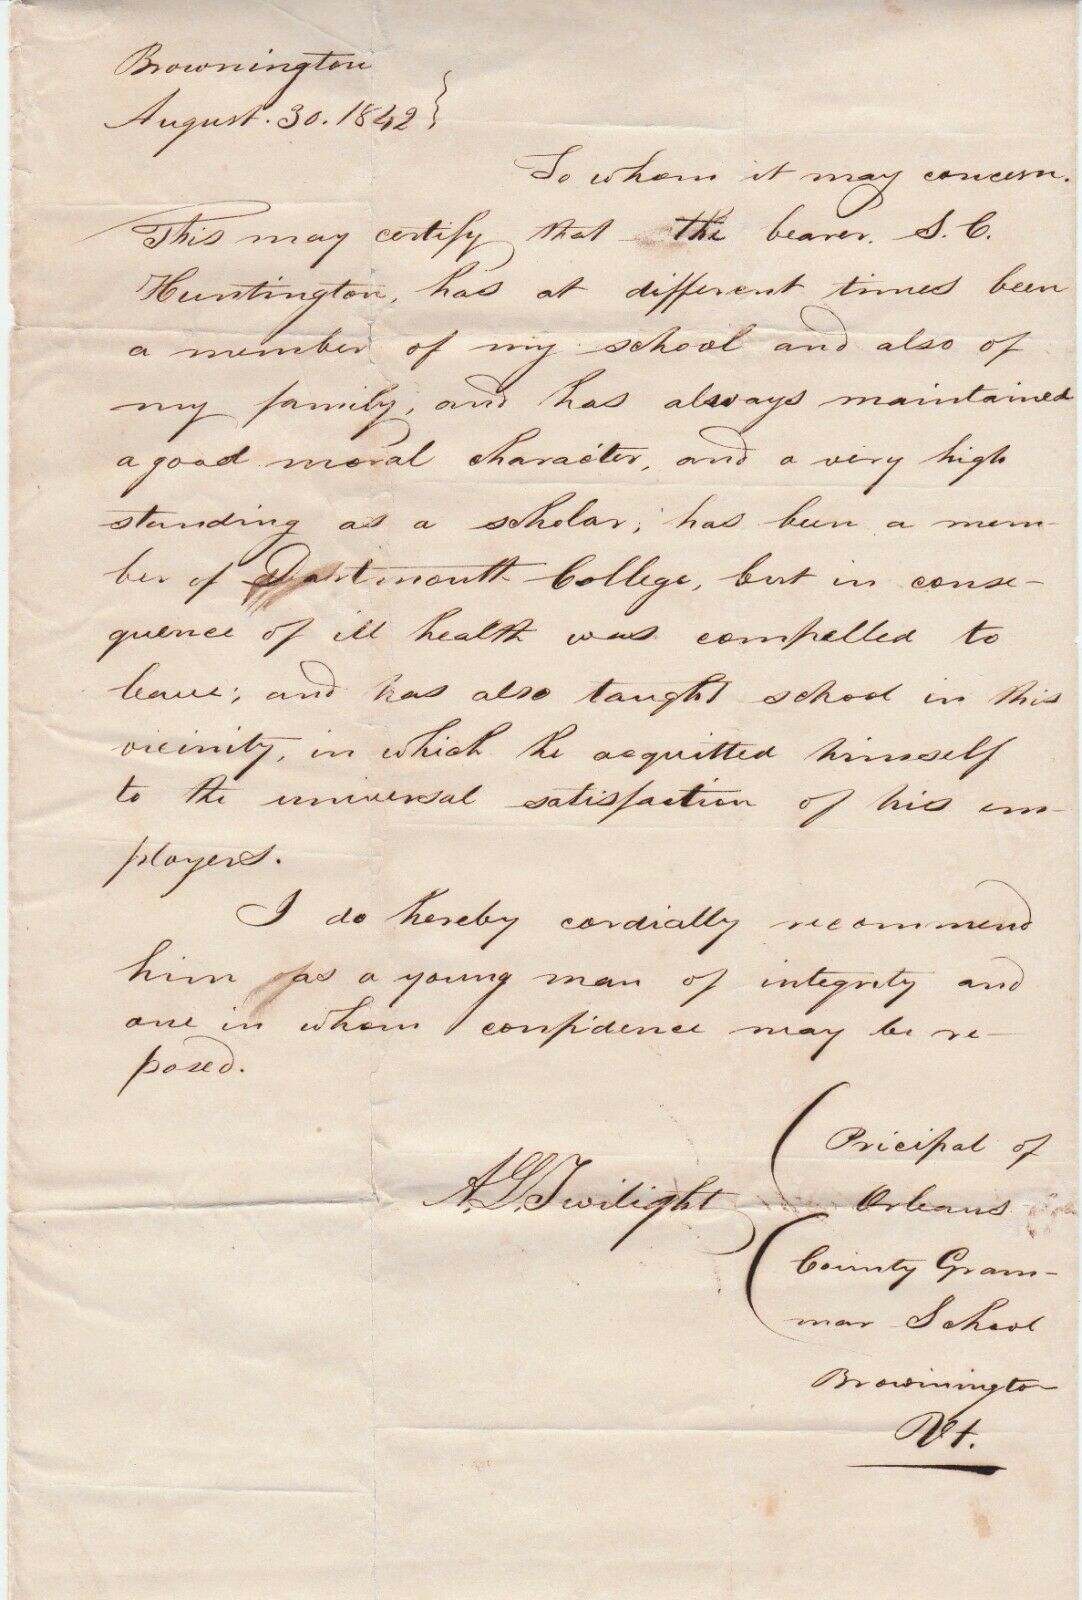 Brownington
August. 30. 1842 }
To whom it may concern.
This may certify that the bearer. S. C.
Huntington, has at different times been
a member of my school and also of
my family, and has always maintained
a good moral character, and a very high
standing as a scholar; has been a mem-
ber of Dartmouth College, but in conse-
quence of ill health was compelled to
leave; and has also taught school in this
vicinity, in which he acquitted himself
to the universal satisfaction of his em-
ployers.
I do hereby cordially recommend
him as a young man of integrity and
one in whom confidence may be re-
posed.
A. L. Twilight
( Pricipal of
Orleans
( County Gram-
mar School
Brownington
Vt.